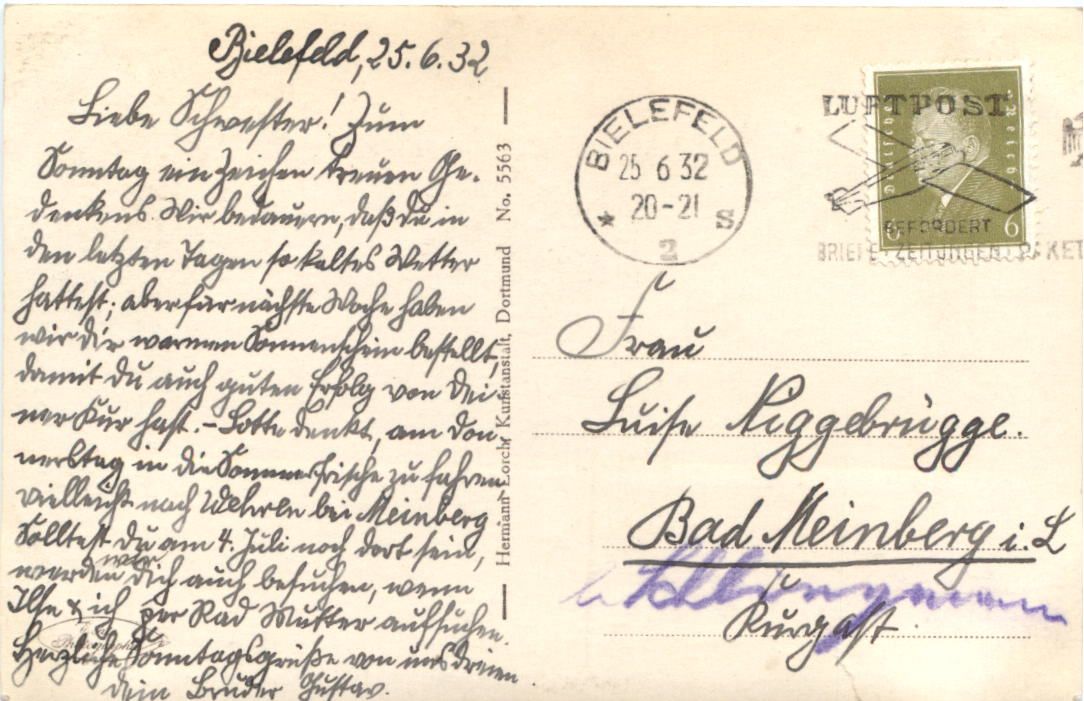 Bielefeld, 25.6.32
Liebe Schwester! Zum
Sonntag ein Zeichen treuen Ge-
denkens. Wir bedauern, daß du in
den letzten Tagen so kaltes Wetter
hattest; aber für nächste Woche haben
wir dir warmen Sonnenschein bestellt,
damit du auch guten Erfolg von dei-
ner Kur hast. – Lotte denkt, am Don-
nerstag in die Sommerfrische zu fahren
vielleicht nach Wehrln bei Meinberg
Solltest Du am 4. Juli noch dort sein,
werden wir Dich auch besuchen, wenn
Ilse & ich per Rad Mutter aufsuchen.
Herzliche Sonntagsgrüße von uns dreien
dein Bruder Gustav.
Photographie
Hermann Lorch, Kunstanstalt, Dortmund No. 5563
BIELEFELD
25 6 32
20-21
* 2 S
LUFTPOST
BEFÖRDERT
BRIEFE ZEITUNGEN PAKET
Deutsches Reich
6 6
Frau
Luise Niggebrügge.
Bad Meinberg i. L
Kurgast